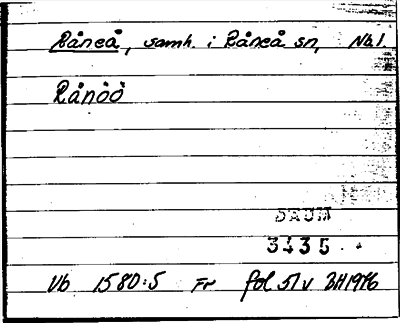 Råneå, samh. i Råneå sn, Nb.
Rånöö
DAUM
3435
Vb 1580:5 Fr fol 51 v BH 1976